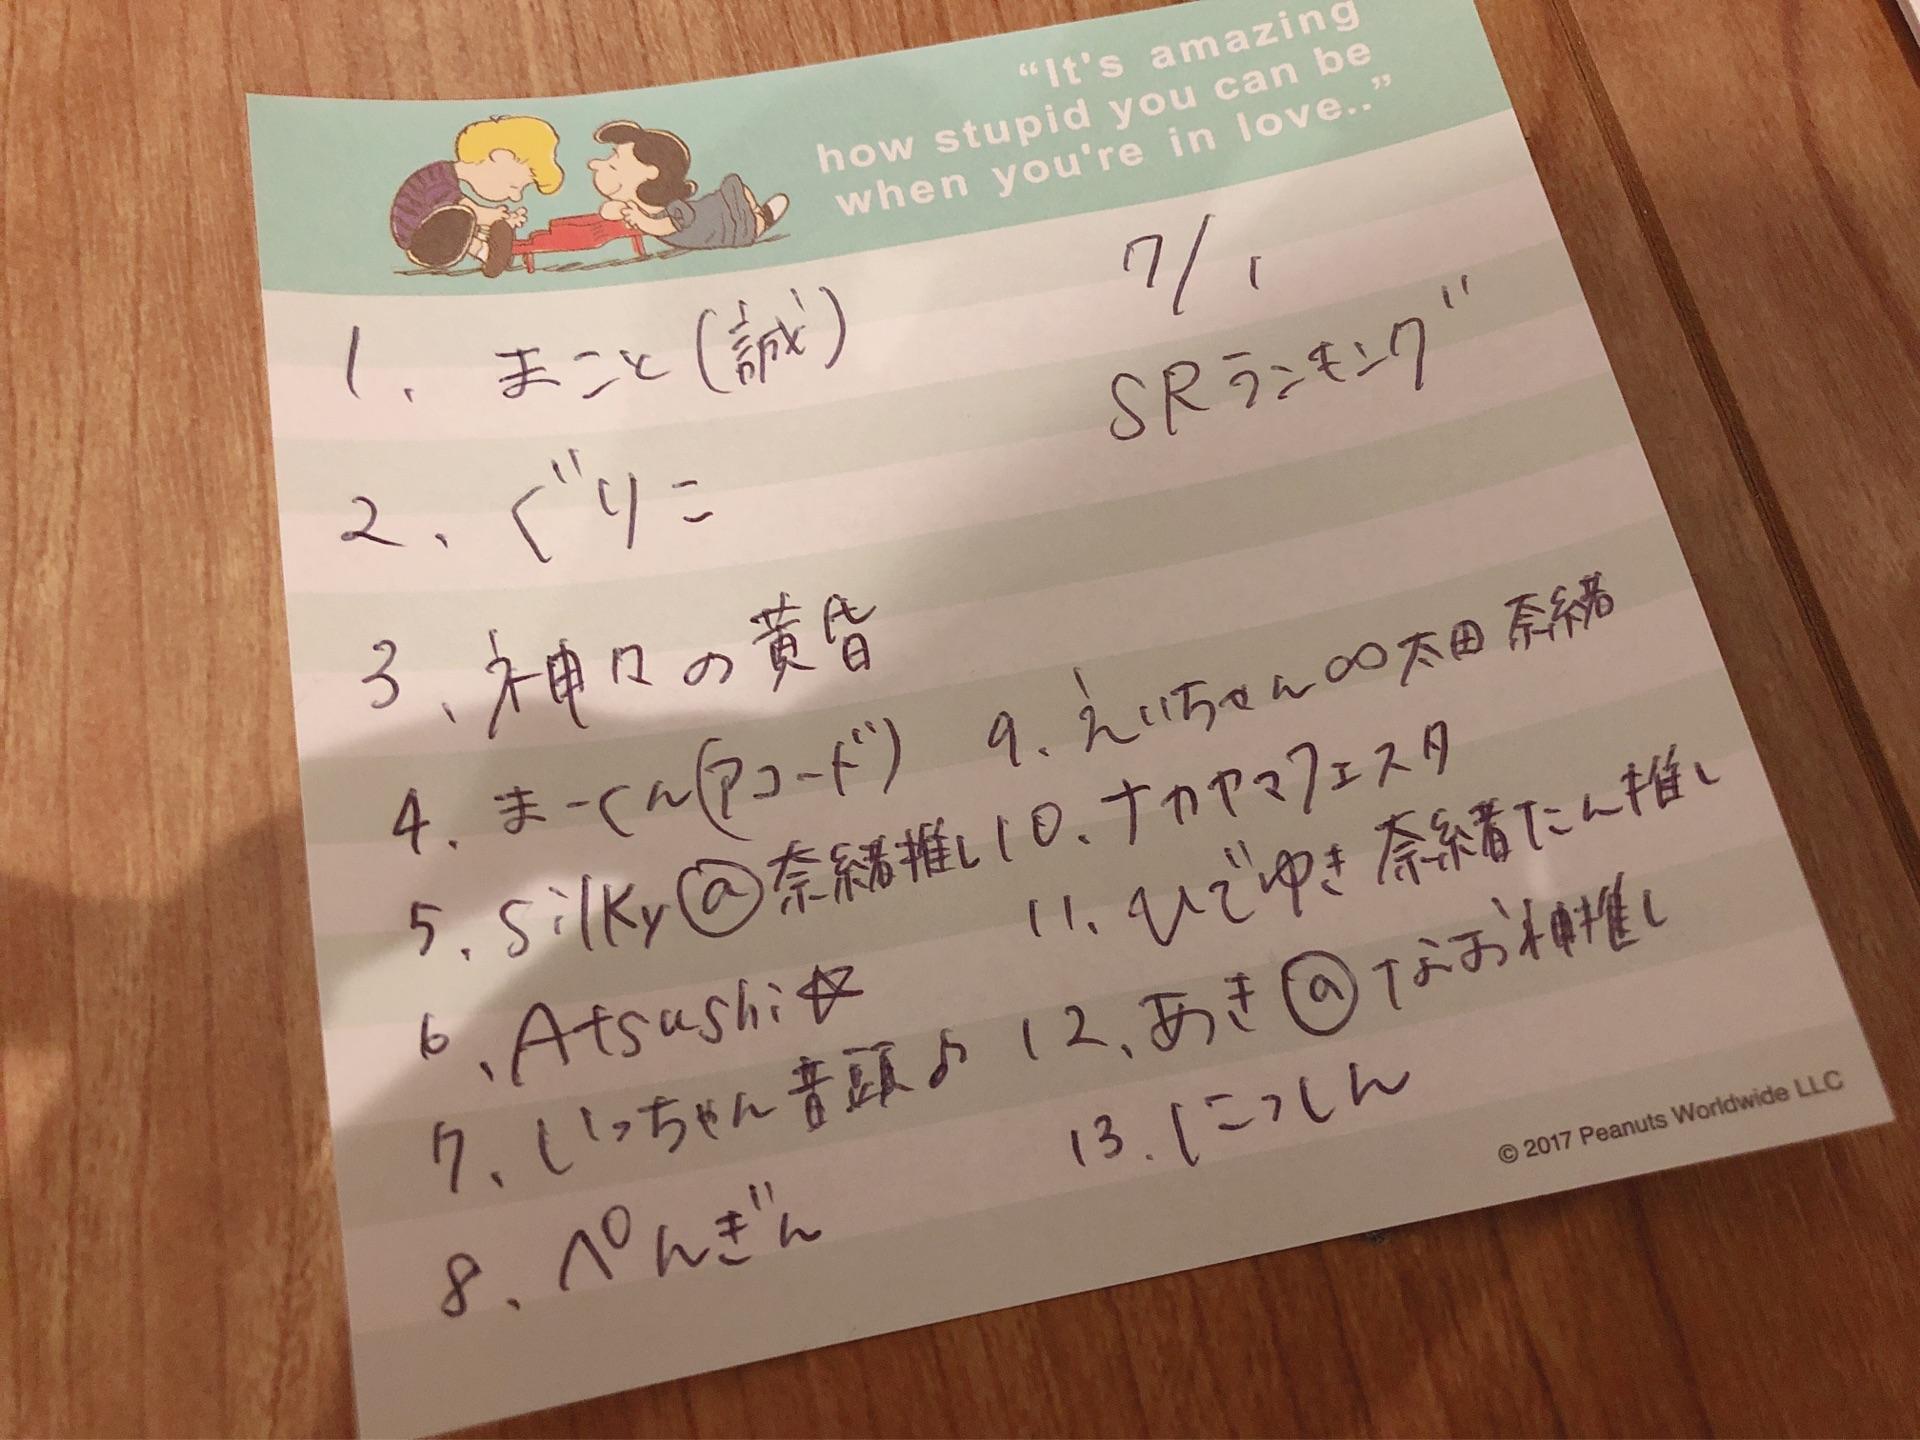 “It's amazing
how stupid you can be
when you're in love..”
7/1
SRランキング
1. まこと(誠)
2、ぐりこ
3、神々の黄昏
4. まーくん(アコード)
5. silky@奈緒推し
6、Atsushi☆
7、いっちゃん音頭♪
8、ぺんぎん
9、えいちゃん∞太田奈緒
10、ナカヤマフェスタ
11. ひでゆき奈緒たん推し
12、あき@なお神推し
13. にっしん
© 2017 Peanuts Worldwide LLC